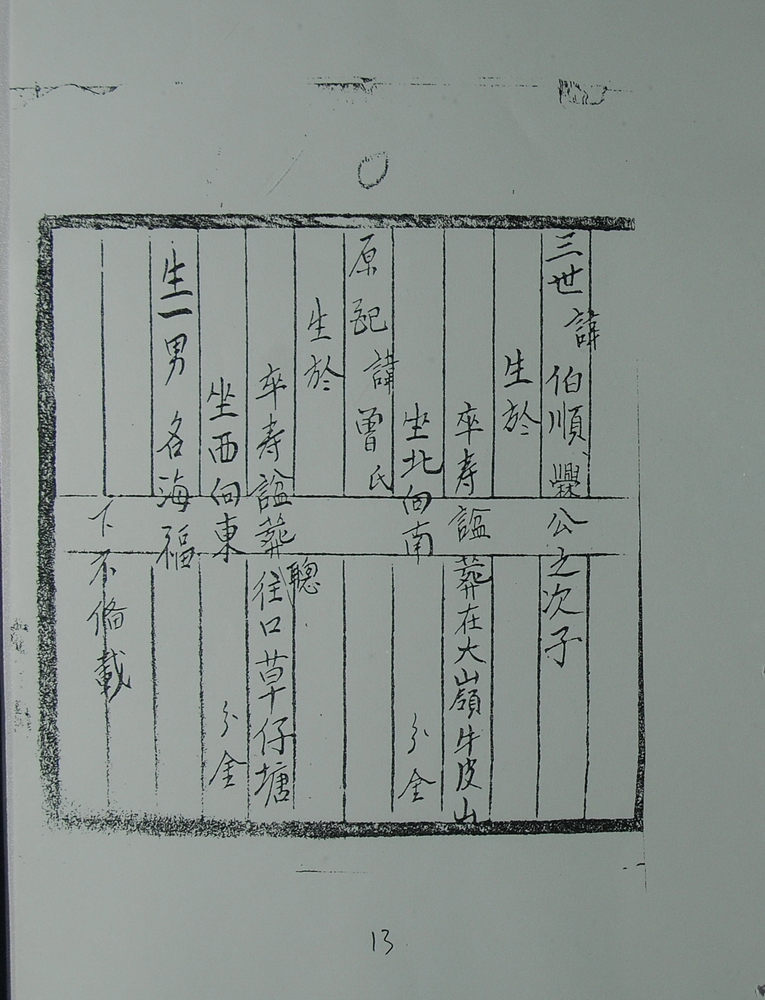 三世 諱伯順、爨公之次子
生於
卒寿諡 葬在大山嶺牛皮山
坐北向南 分金
原配 諱曾氏
生於
聰
卒寿諡葬徃口草仔塘
坐西向東 分金
生一男 名海福
下不俻載
13